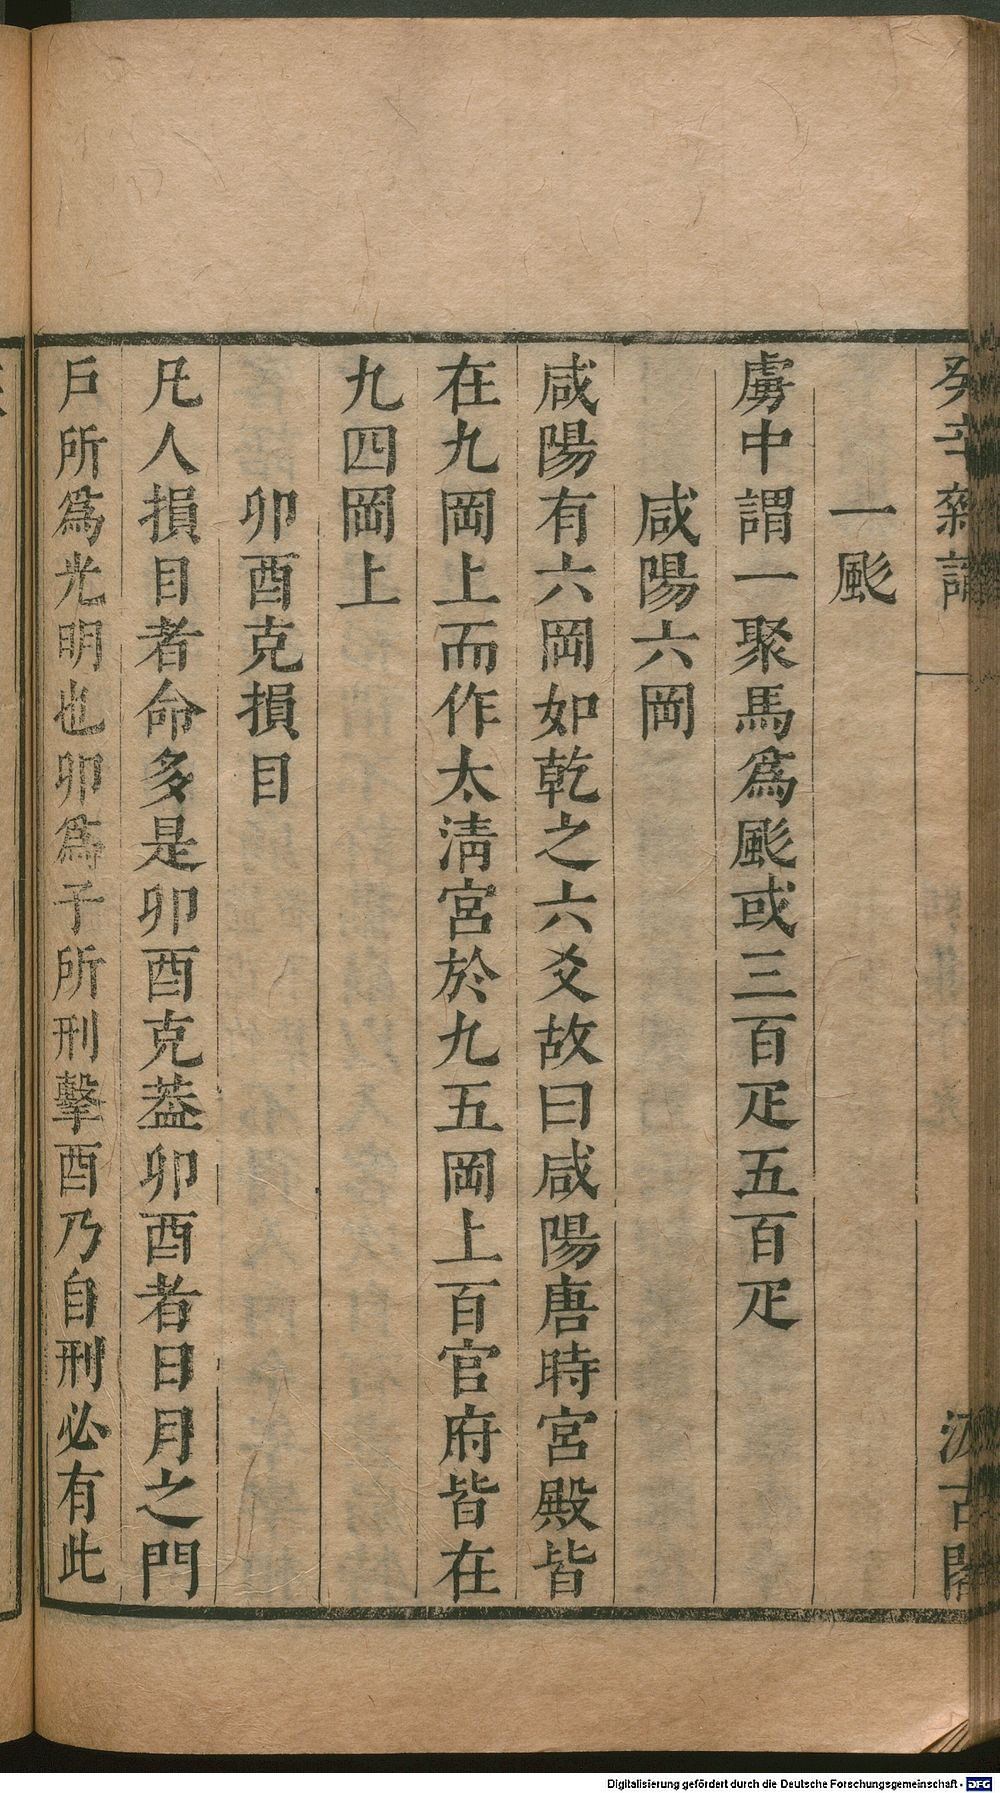 癸辛雜識
汲古閣
一颩
虜中謂一聚馬爲颩或三百疋五百疋
咸陽六岡
咸陽有六岡如乾之六爻故曰咸陽唐時宮殿皆
在九岡上而作太清宮於九五岡上百官府皆在
九四岡上
卯酉克損目
凡人損目者命多是卯酉克葢卯酉者日月之門
戶所爲光明也卯爲子所刑擊酉乃自刑必有此
Digitalisierung gefördert durch die Deutsche Forschungsgemeinschaft - DFG